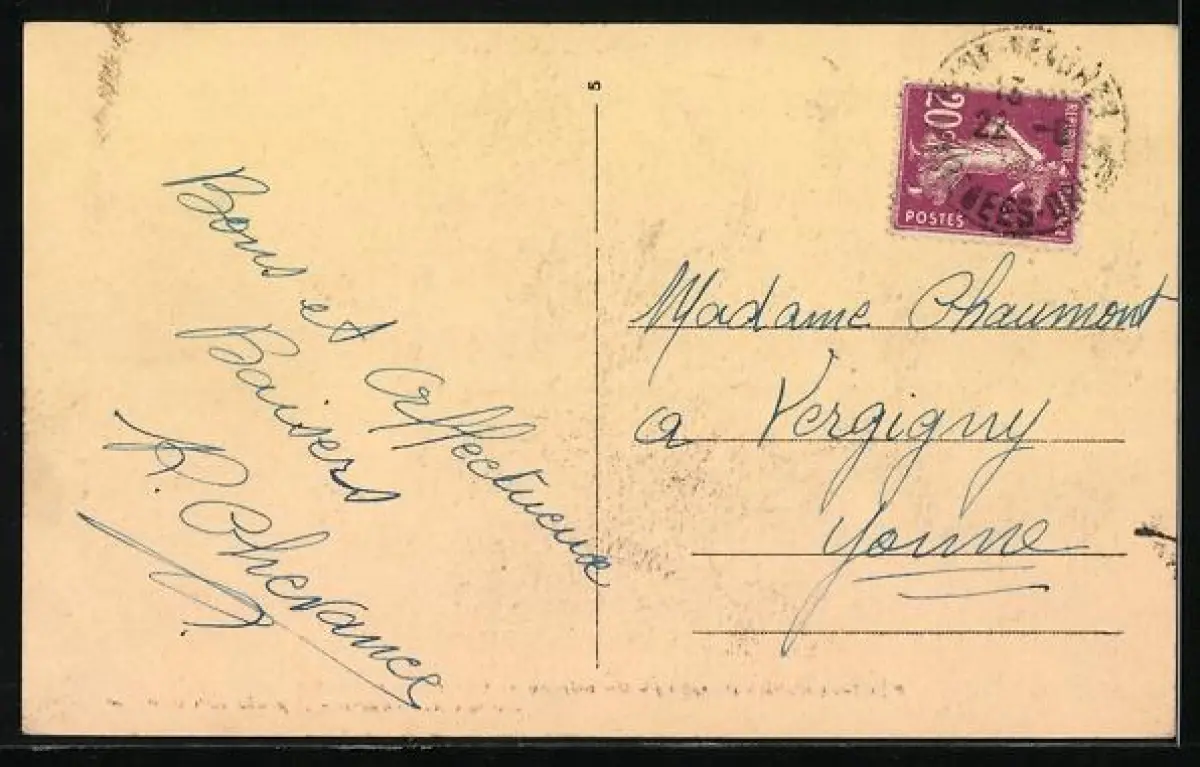 Bons et affectueux
Baisers
R. Chevance
5
20c
POSTES
Madame Chaumont
a Vergigny
Yonne